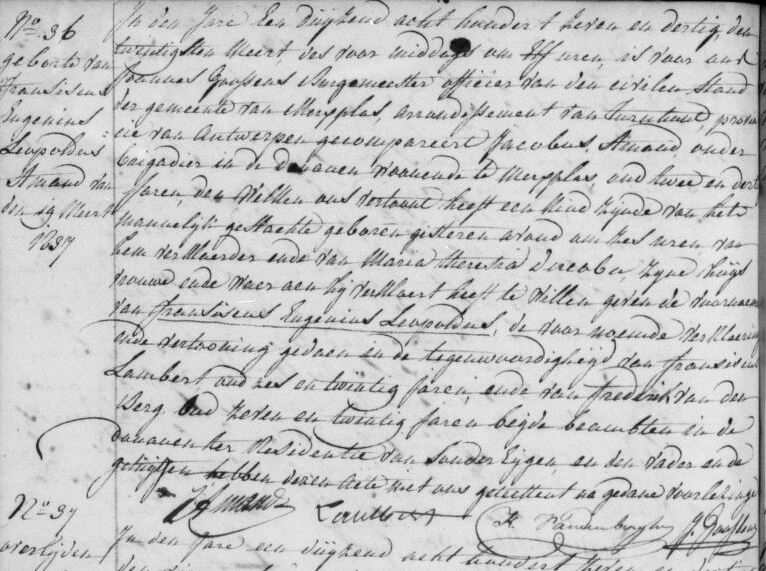 No. 36
geborte van
Fransiscus
Eugenius
Leopoldus
Amand van
den 19 Meert
1837
In den Jare Een duyzend acht hondert zeven en dertig den
twintigsten Meert, des voor middags om elf uren, is voor ons
Joannes Goossens Burgemeester officier van den civilen Stand
der gemeente van Merxplas, arrondissement van Turnhout, provin
cie van Antwerpen gecompareert Jacobus Amand onder
brigadier in de douanen woonende te Merxplas, oud twee en dertig
Jaren, den welken ons vertoont heeft een kind zijnde van het
mannelijk geslachte geboren gisteren avond om zes uren van
hem verklaerder ende van Maria Theresia, zyne huys
vrouwe ende waer aen hy verklaert heeft te willen geven de voornaemen
van Fransiscus Eugenius Leopoldus, de voor noemde verklaering
ende vertooning gedaen in de tegenwoordigheyd van Fransiscus
Lambert oud zes en twintig Jaren, ende van Fredrik van den
Berg oud zeven en twintig Jaren beyde beambten in de
douanen ter Residentie van Zondereygen en den vader ende
getuygen hebben dezen acte met ons geteekent na gedane voorlezinge
JAmand Lambert F. Vandenbergh J. Goossens
No. 37
overlyden
In den Jare een duyzend acht hondert zeven en